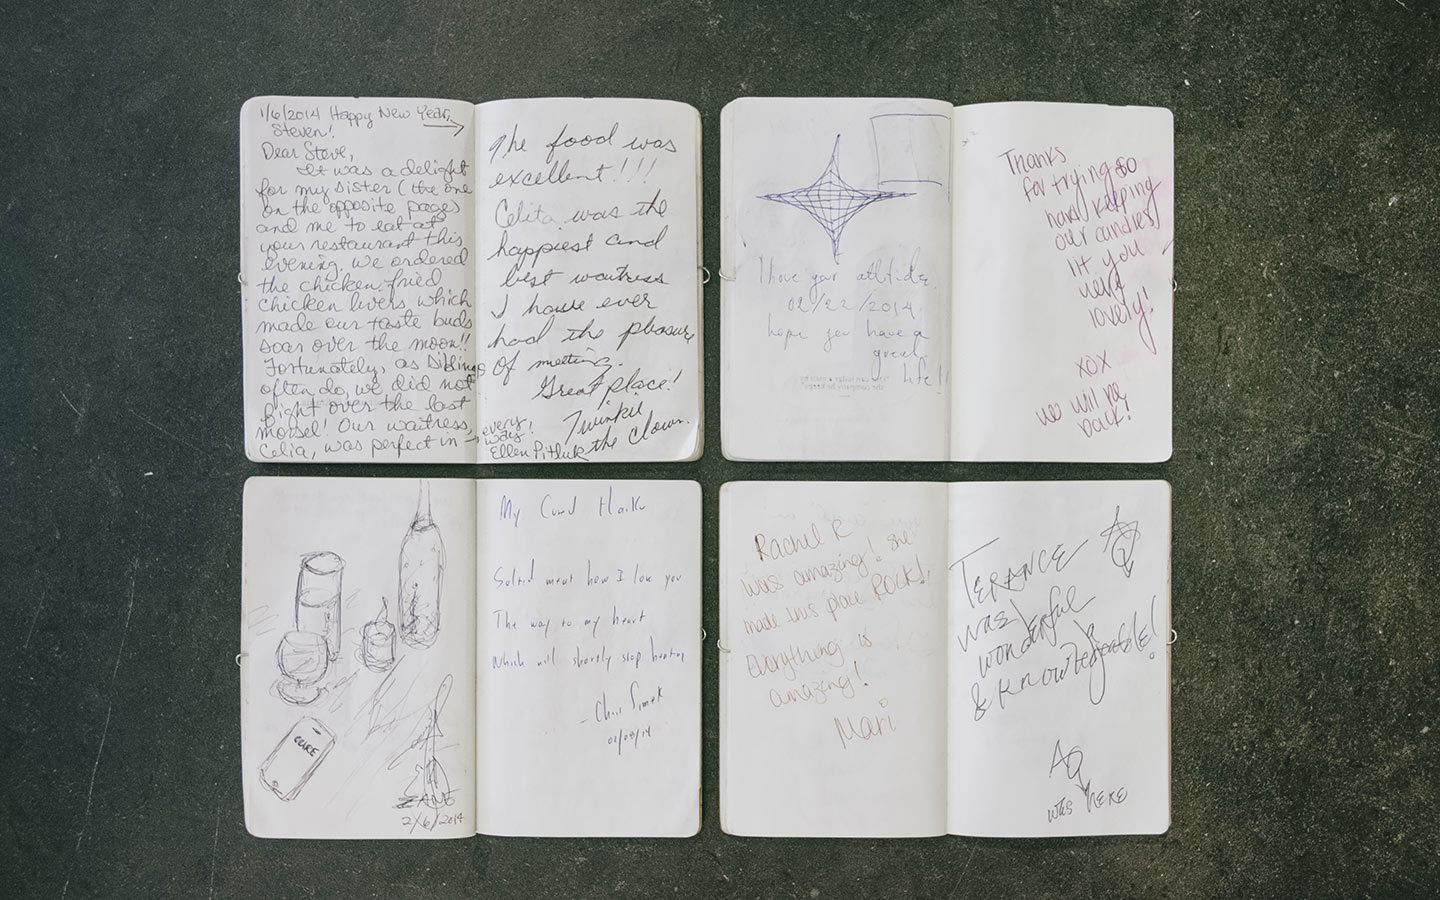 1/6/2014 Happy New Year,
Steven!
Dear Steve,
It was a delight
for my sister (the one
on the opposite page)
and me to eat at
your restaurant this
evening. We ordered
the chicken fried
chicken livers which
made our taste buds
soar over the moon!!
Fortunately, as siblings
often do, we did not
fight over the last
morsel! Our waitress,
Celia, was perfect in
every
way!
Ellen Pitluk
The food was
excellent!!!
Celita was the
happiest and
best waitress
I have ever
had the pleasure
of meeting.
Great place!
Twinkie
the Clown.
I love your attitude.
02/22/2014.
hope you have a
great
life!!
Thanks
for trying so
hard keeping
our candles
lit you
very
lovely!
xox
we will be
back!
CURE
ZANE
2/6/2014
My Cured Haiku
Salted meat how I love you
The way to my heart
Which will shortly stop beating
- Chris
02/08/14
Rachel R
was amazing! She
made this place ROCK!
Everything is
amazing!
Mari
TERANCE
was
wonderful
& knowledgeable!
AQ
was here